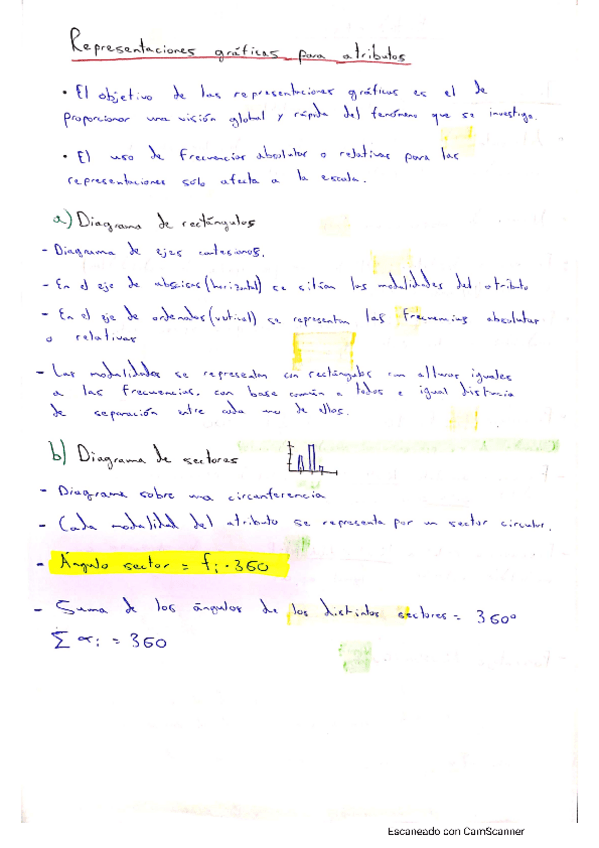 Representaciones gráficas para atributos
• El objetivo de las representaciones gráficas es el de
proporcionar una visión global y rápida del fenómeno que se investiga.
• El uso de frecuencias absolutas o relativas para las
representaciones sólo afecta a la escala.
a) Diagrama de rectángulos
- Diagrama de ejes cartesianos.
- En el eje de abscisas (horizontal) se sitúan las modalidades del atributo
- En el eje de ordenadas (vertical) se representan las frecuencias absolutas
o relativas
- Las modalidades se representan con rectángulos con alturas iguales
a las frecuencias, con base común a todos e igual distancia
de separación entre cada uno de ellos.
b) Diagrama de sectores
- Diagrama sobre una circunferencia
- Cada modalidad del atributo se representa por un sector circular.
- Ángulo sector = fi · 360
- Suma de los ángulos de los distintos sectores = 360º
∑ αi = 360
Escaneado con CamScanner